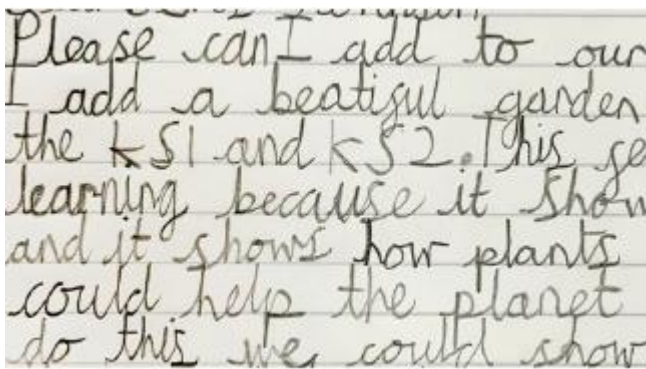 Please can I add to our
I add a beatiful garden
the KS1 and KS2. This ge
learning because it show
and it shows how plants
could help the planet
do this we could show